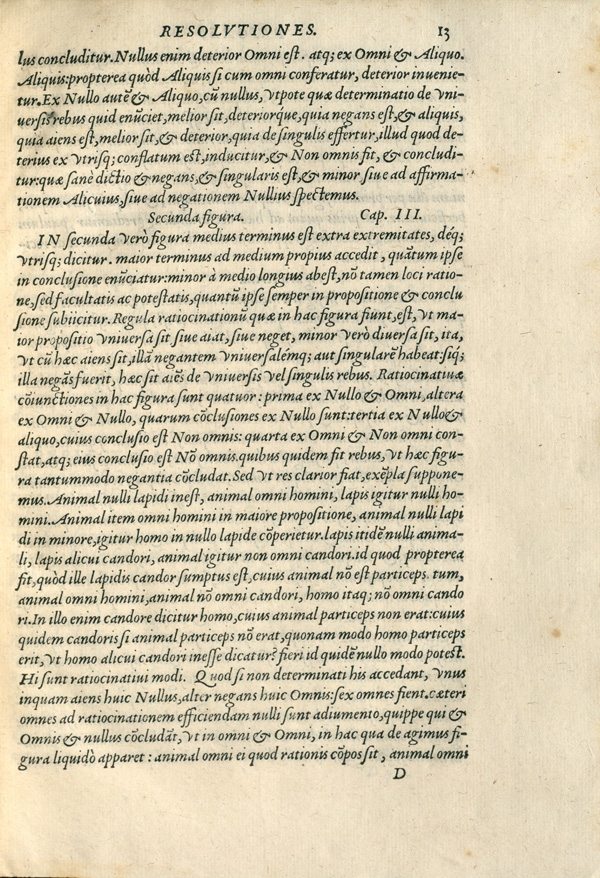 RESOLVTIONES. 13
lus concluditur. Nullus enim deterior Omni est. atq; ex Omni & Aliquo.
Aliquis: propterea quòd Aliquis si cum omni conferatur, deterior inuenie-
tur. Ex Nullo autē & Aliquo, cũ nullus, vtpote quæ determinatio de vni-
uersis rebus quid enũciet, melior sit, deteriorq́ue, quia negans est, & aliquis,
quia aiens est, melior sit, & deterior, quia de singulis effertur, illud quod de-
terius ex vtrisq; conflatum est, inducitur, & Non omnis fit, & concludi-
tur: quæ sanè dictio & negans, & singularis est, & minor siue ad affirma-
tionem Alicuius, siue ad negationem Nullius spectemus.
Secunda figura. Cap. III.
IN secunda verò figura medius terminus est extra extremitates, déq;
vtrisq; dicitur. maior terminus ad medium propius accedit, quãtum ipse
in conclusione enũciatur: minor à medio longius abest, nõ tamen loci ratio-
ne, sed facultatis ac potestatis, quantũ ipse semper in propositione & conclu
sione subiicitur. Regula ratiocinationũ quæ in hac figura fiunt, est, vt ma-
ior propositio vniuersa sit siue aiat, siue neget, minor verò diuersa sit, ita,
vt cũ hæc aiens sit, illã negantem vniuersalémq; aut singularē habeat: síq;
illa negãs fuerit, hæc sit aiẽs de vniuersis vel singulis rebus. Ratiocinatiuæ
cõiunctiones in hac figura sunt quatuor: prima ex Nullo & Omni, altera
ex Omni & Nullo, quarum cõclusiones ex Nullo sunt: tertia ex Nullo &
aliquo, cuius conclusio est Non omnis: quarta ex Omni & Non omni con-
stat, atq; eius conclusio est Nõ omnis. quibus quidem fit rebus, vt hæc figu-
ra tantummodo negantia cõcludat. Sed vt res clarior fiat, exẽpla suppone-
mus. Animal nulli lapidi inest, animal omni homini, lapis igitur nulli ho-
mini. Animal item omni homini in maiore propositione, animal nulli lapi
di in minore, igitur homo in nullo lapide cõperietur. lapis itidẽ nulli anima-
li, lapis alicui candori, animal igitur non omni candori. id quod propterea
fit, quòd ille lapidis candor sumptus est, cuius animal nõ est particeps. tum,
animal omni homini, animal nõ omni candori, homo itaq; nõ omni cando
ri. In illo enim candore dicitur homo, cuius animal particeps non erat: cuius
quidem candoris si animal particeps nõ erat, quonam modo homo particeps
erit, vt homo alicui candori inesse dicatur? fieri id quidẽ nullo modo potest.
Hi sunt ratiocinatiui modi. Quod si non determinati his accedant, vnus
inquam aiens huic Nullus, alter negans huic Omnis: sex omnes fient. cæteri
omnes ad ratiocinationem efficiendam nulli sunt adiumento, quippe qui &
Omnis & nullus cõcludãt, vt in omni & Omni, in hac qua de agimus fi-
gura liquidò apparet: animal omni ei quod rationis cõpos sit, animal omni
D